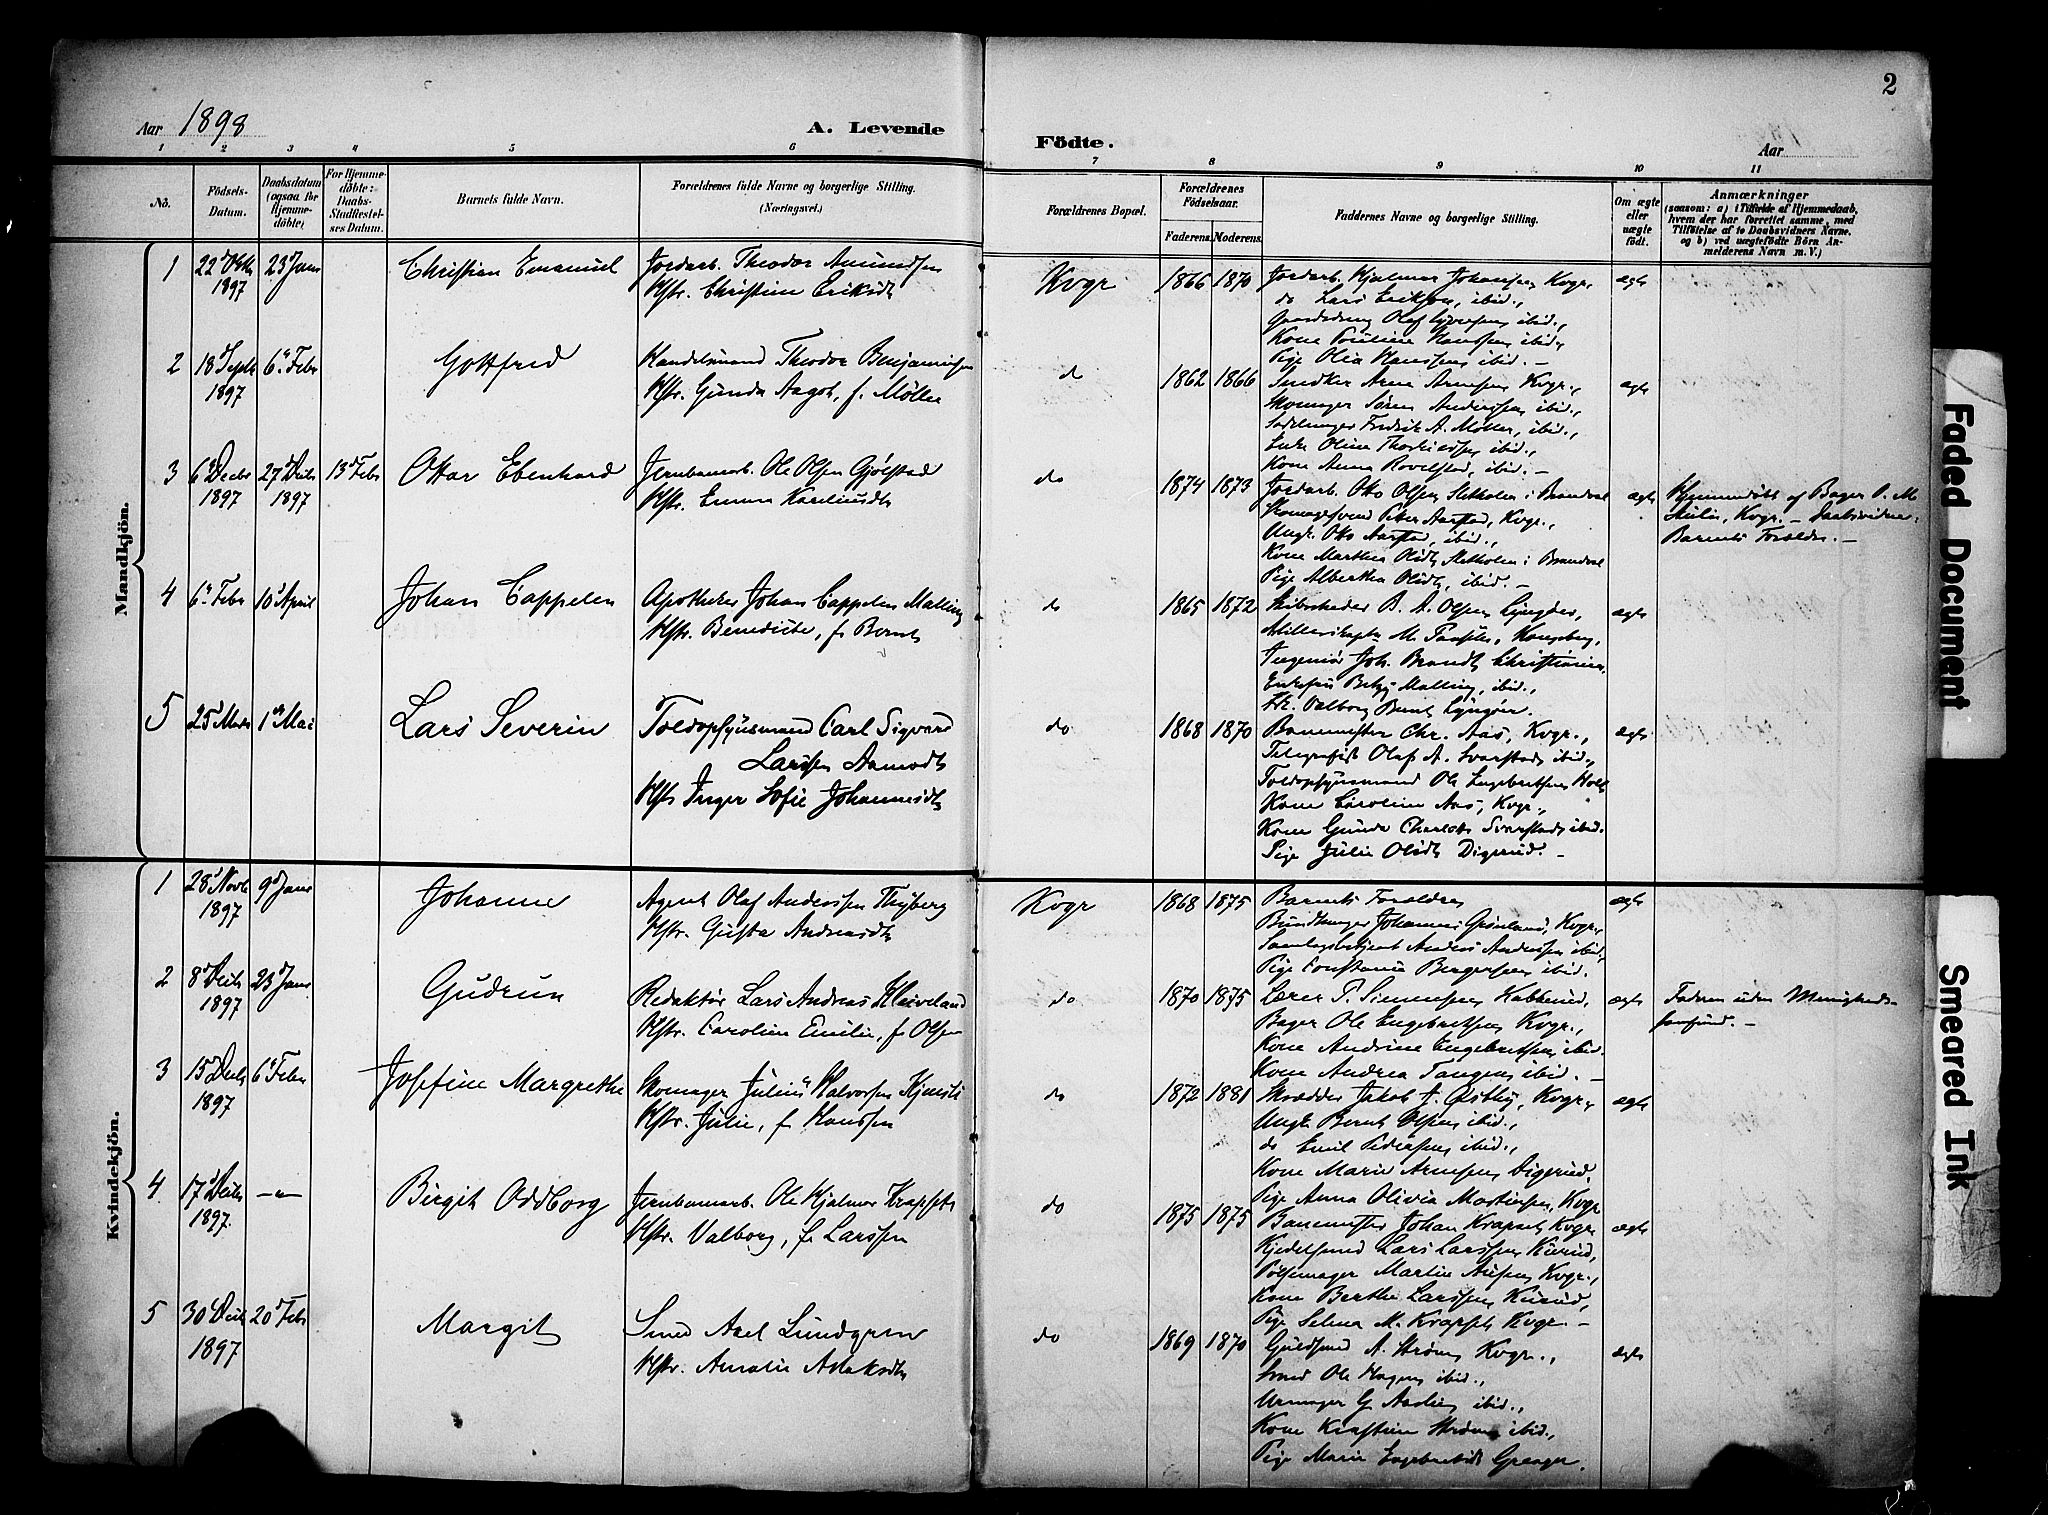 2
Aar 1898
A. Levende
Födte.
Aar
1 2 3 4 5 6 7 8 9 10 11
No.
Födsels-Datum.
Daabsdatum (ogsaa for Hjemme-döbte).
For Hjemme-döbte: Daabs-Stadfæstel-ses Datum.
Barnets fulde Navn.
Forældrenes fulde Navne og borgerlige Stilling.
(Næringsvei.)
Forældrenes Bopæl.
Forældrenes Födselsaar.
Faderens. Moderens.
Faddernes Navne og borgerlige Stilling.
Om ægte eller uægte födt.
Anmærkninger
(saasom: a) i Tilfælde af Hjemmedaab,
hvem der har forrettet samme, med
Tilföielse af to Daabsvidners Navne.
og b) ved uægtefödte Börn An-
melderens Navn m. V.)
Mandkjön.
1 22 Oktb 1897 23 Janr Christian Emanuel
Jordarb. Theodor Amundsen
Hstr. Christine Eriksdtr
Kvgr 1866 1870
Jordarb. Hjalmar Johansen, Kvgr.
do Lars Eriksen, ibid.,
Olaf ibid.,
Kone Pauline Hanssen ibid.,
Pige Olia Hanssen, ibid. -
ægte
2 18 Septb 1897 6 Febr Gottfred
Handelsmand Theodor Benjaminsen
Hstr. Gunda Aagot, f. Möller
do 1862 1866
Snedker Arne Arnesen, Kvgr.,
Skomager Sören Anderssen, ibid.,
Fredrik A. Möller, ibid.,
Enke Olina ibid.,
Kone Anna Rovelstad, ibid. -
ægte
3 6 Decbr 1897 27 Decbr 1897 13 Febr Ottar Ebenhard
Jernbanearb. Ole Olsen Gjölstad
Hstr. Emma Karelius dtr
do 1874 1873
Jordarb. Otto Olsen, i Brandval
Peter Aarstad, Kvgr.,
Ungk. Otto Aarstad, ibid.,
Kone Marthea Olsdtr i Brandval
Pige Alberthea Olsdtr, ibid. -
ægte
Hjemmedöbt af Bager O. M.
Kvgr. - Daabsvidner:
Barnets Forældre. -
4 6 Febr 10 April Johan Cappelen
Apotheker Johan Cappelen Malling
Hstr. Benedicte, f. Bernt
do 1865 1872
Skibsrheder B. A. Olsen, Lyngör,
M. Kongsberg,
Ingeniör Joh. Brandt, Christiania,
Betzy Malling, ibid.,
Frk. Valborg Bernt, Lyngör.
ægte
5 25 Marts 1 Mai Lars Severin
Toldopsynsmand Carl Sigvard
Larssen Aamodt
Hstr Inger Sofie Johannesdtr
do 1868 1870
Banemester Chr. Aas, Kvgr.,
Telegrafist Olaf A. Svarstad, ibid.,
Toldopsynsmand Ole Engebretsen Holt "
Kone Caroline Aas, Kvgr.,
Kone Gunda Charlotte Svarstad, ibid.
Pige Julie Olsdtr Digerud. -
ægte
Kvindekjön.
1 28 Novb 1897 9 Janr Johanne
Agent Olaf Anderssen Thyberg
Hstr. Gusta Andreasdtr
Kvgr 1868 1875
Barnets Forældre
Buntmager Johannes Grönland, Kvgr.,
Samlagsbetjent Anders Anderssen ibid.,
Pige Constance Bergersen, ibid.
ægte
2 8 Decb 1897 23 Janr Gudrun
Redaktör Lars Andreas Kleiveland
Hstr. Caroline Emilie, f. Olsen
do 1870 1875
Lærer P. Simensen,
Bager Ole Engebretsen, Kvgr.,
Kone Andrine Engebretsen, ibid.
Kone Andrea Tangen, ibid. -
ægte
Faderen uden Menigheds-
samfund. -
3 15 Decb 1897 6 Febr Josefine Margrethe
Skomager Julius Halvorsen
Hstr. Julie, f. Hanssen
do 1872 1881
Skrædder Jakob J. Östby, Kvgr.,
Ungk. Bernt Olsen, ibid.,
do Emil Pedersen, ibid.,
Kone Marie Arnesen, Digerud,
Pige Anna Olivia Martinsen, Kvgr
ægte
4 17 Decb 1897. -"- Birgit Oddborg
Jernbanearb. Ole Hjalmar Krapset
Hstr. Valborg, f. Larssen
do 1875 1875
Banemester Johan Krapset, Kvgr
Kjedelsmed Lars Larssen, Kurud,
Pölsemager Martin Kvgr.,
Kone Berthe Larssen, Kurud,
Pige Selma M. Krapset, Kvgr. -
ægte
5 30 Decb 1897 20 Febr Margit
Smed Axel Lundgren
Hstr. Amalie Aslaksdtr
do 1869 1870
Guldsmed A. Ström, Kvgr.,
Smed Ole Hagen, ibid.,
Urmager G. ibid.,
Kone Kirstine Ström, ibid.,
Pige Marie Engebretsdtr
ægte
Faded Document
Smeared Ink